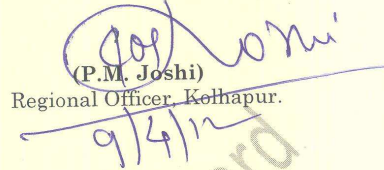 Joshi
(P.M. Joshi)
Regional Officer, Kolhapur.
9/4/12